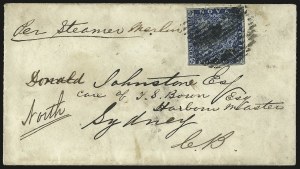 Per Steamer Merlin
NOVA
Donald Johnstone Esq
care of T. S. Bown Esq
Harbour Master
North
Sydney
C.B.